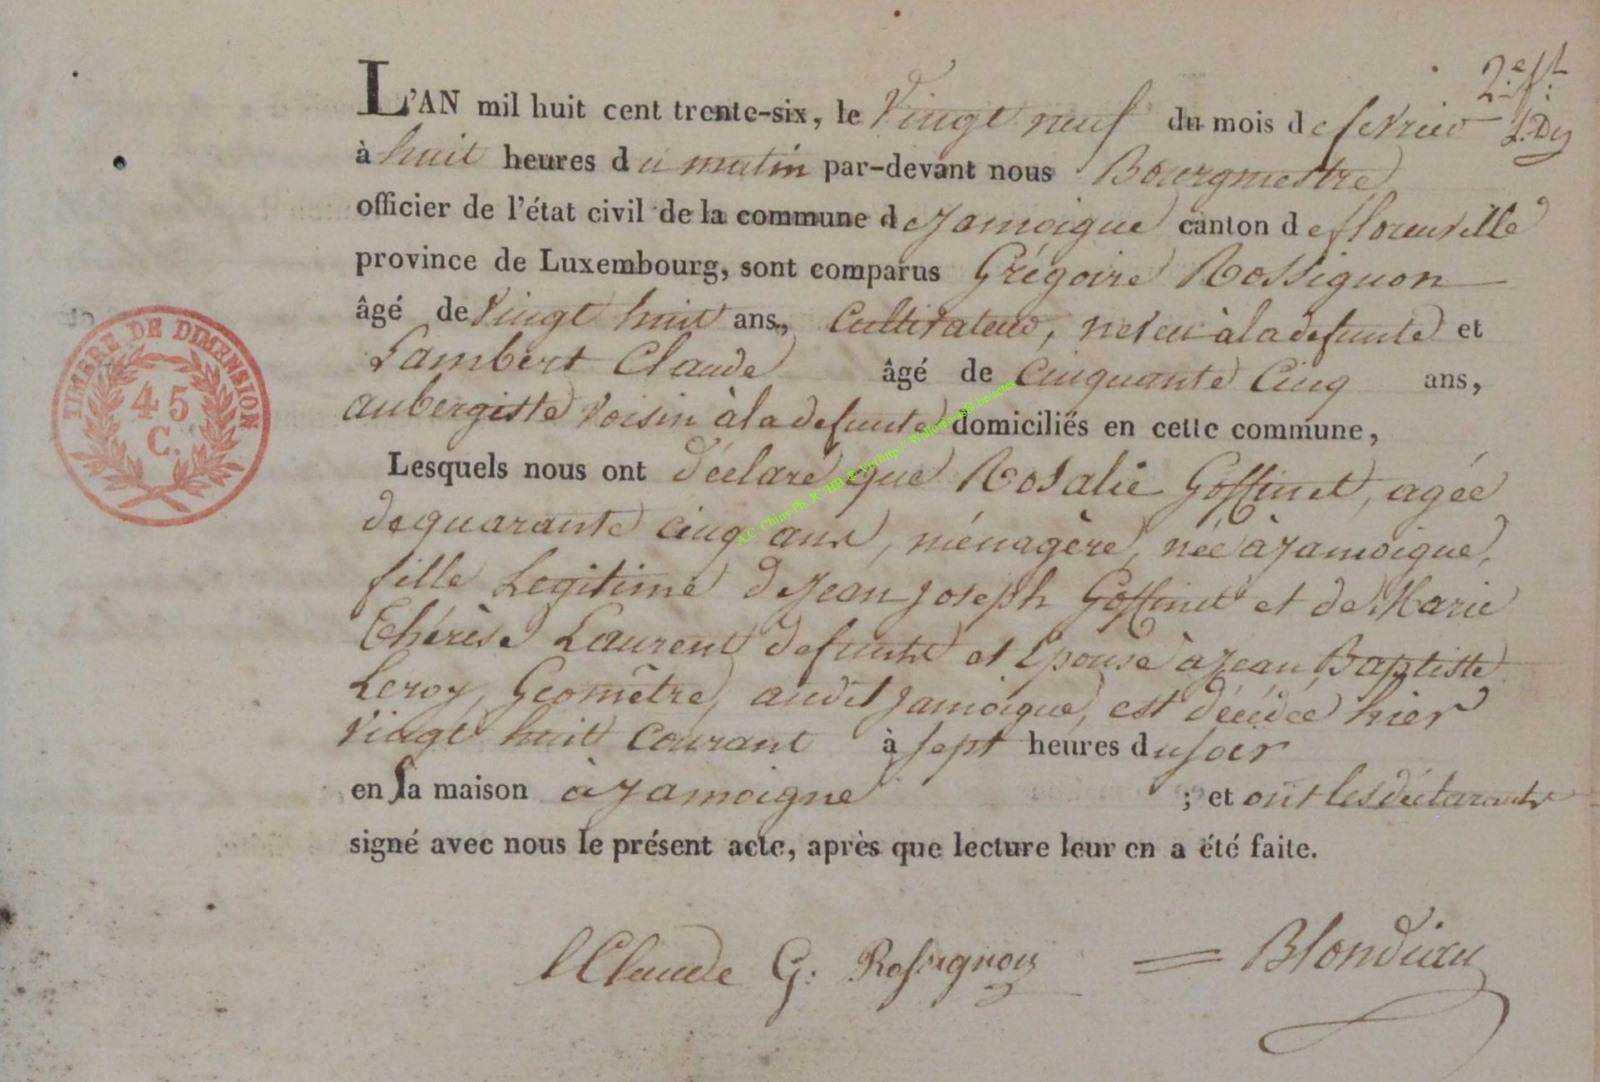 L'AN mil huit cent trente-six, le Vingt neuf du mois de fevrier
à huit heures du matin par-devant nous Bourgmestre
officier de l'état civil de la commune de Jamoigne canton de florenville
province de Luxembourg, sont comparus Grégoire Rossignon
âgé de Vingt huit ans, Cultivateur, neveu à la defunte et
Lambert Claude âgé de Cinquante Cinq ans,
aubergiste Voisin à la defunte domiciliés en cette commune,
Lesquels nous ont déclaré que Rosalie Goffinet, agée
de quarante cinq ans, ménagère, née à Jamoigne,
fille Legitime de Jean joseph Goffinet et de Marie
Thérèse Laurent defunts et Epouse à Jean Baptiste
Leroy, Geomètre, audit Jamoigne, est décédée hier
Vingt huit Courant à sept heures du soir
en sa maison à Jamoigne ; et ont les déclarants
signé avec nous le présent acte, après que lecture leur en a été faite.
LClaude G. Rossignon = Blondiau
TIMBRE DE DIMENSION
45
C.